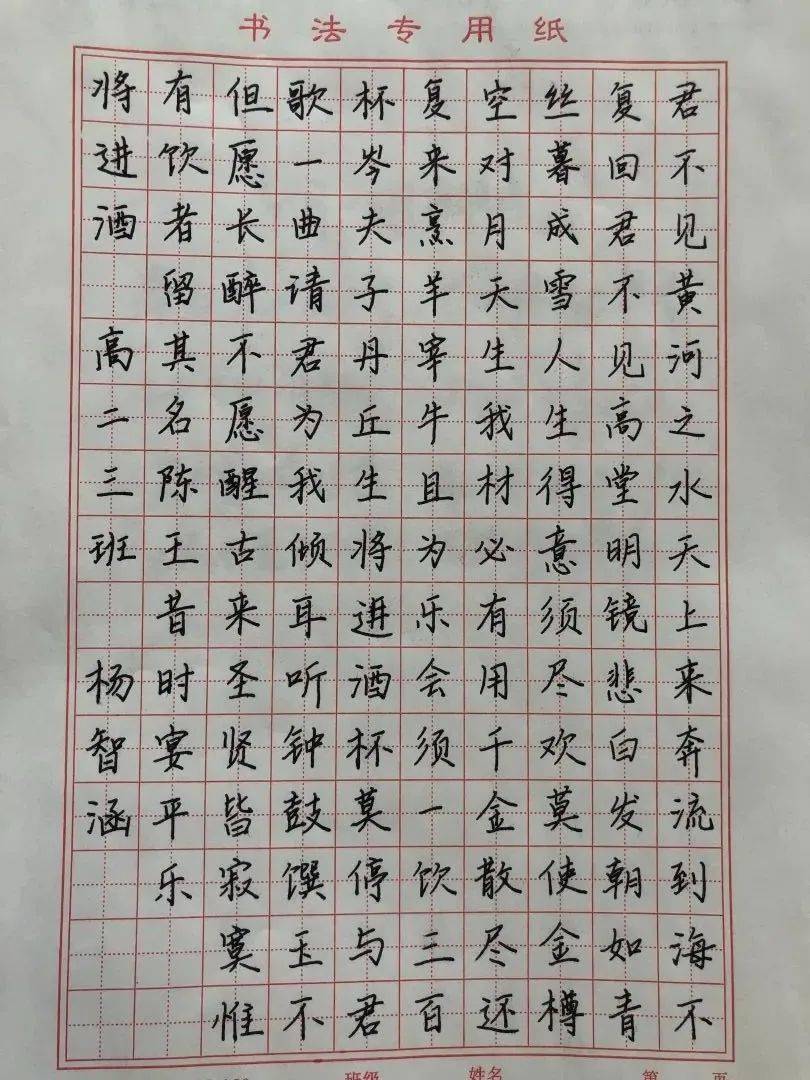 书法专用纸
君不见黄河之水天上来奔流到海不
复回君不见高堂明镜悲白发朝如青
丝暮成雪人生得意须尽欢莫使金樽
空对月天生我材必有用千金散尽还
复来烹羊宰牛且为乐会须一饮三百
杯岑夫子丹丘生将进酒杯莫停与君
歌一曲请君为我倾耳听钟鼓馔玉不
但愿长醉不愿醒古来圣贤皆寂寞惟
有饮者留其名陈王昔时宴平乐
将进酒 高二三班 杨智涵
班级 姓名 第 页